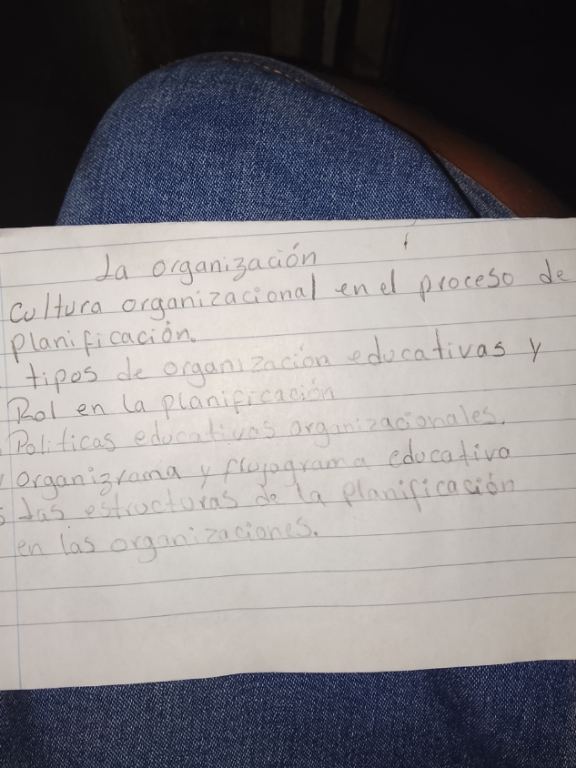 La organización
Cultura organizacional en el proceso de
planificación.
tipos de organización educativas y
Rol en la planificación
Politicas educativas organizacionales.
Organigrama y flujograma educativo
5 las estructuras de la planificación
en las organizaciones.